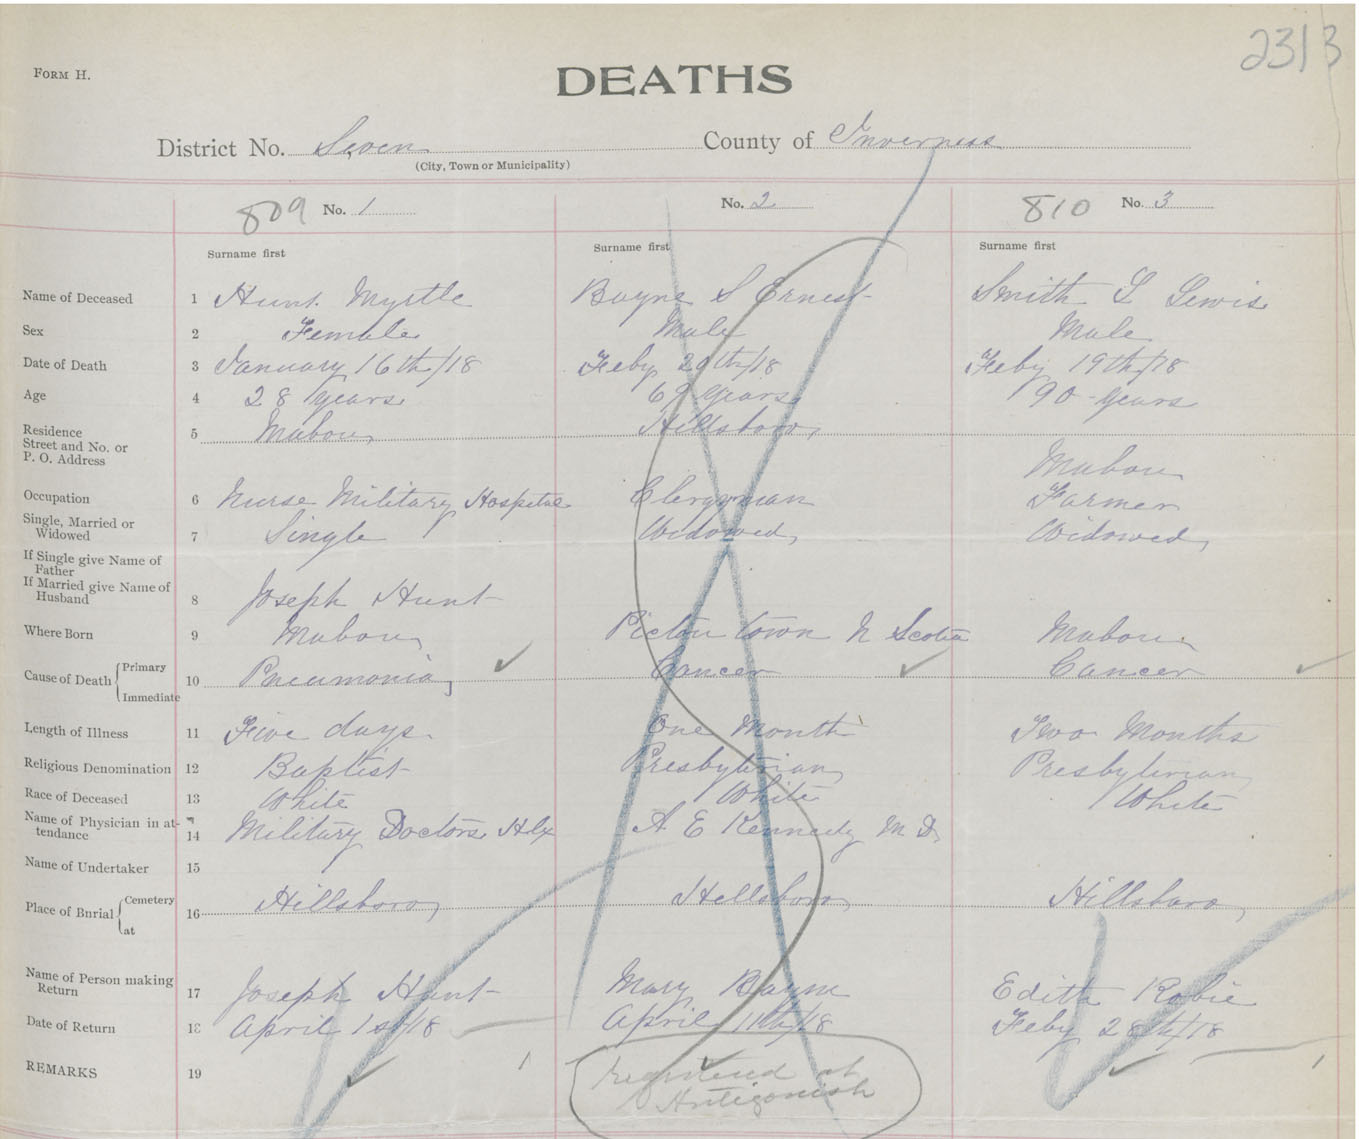 2313
FORM H.
DEATHS
District No. Seven County of Inverness
(City, Town or Municipality)
809 No. 1 No. 2 810 No. 3
Surname first Surname first Surname first
Name of Deceased 1 Hunt Myrtle Bayne S Ernest Smith L Lewis
Sex 2 Female Male Male
Date of Death 3 January 16th/18 Feby 20th/18 Feby 19th/18
Age 4 28 years 69 years 90 years
Residence
Street and No. or
P. O. Address 5 Mabou Hillsboro Mabou
Occupation 6 Nurse Military Hospital Clergyman Farmer
Single, Married or
Widowed 7 Single Widowed Widowed
If Single give Name of
Father
If Married give Name of
Husband 8 Joseph Hunt
Where Born 9 Mabou Pictou town N Scotia Mabou
Cause of Death Primary
Immediate 10 Pneumonia Cancer Cancer
Length of Illness 11 Five days One Month Two Months
Religious Denomination 12 Baptist Presbyterian Presbyterian
Race of Deceased 13 White White White
Name of Physician in at-
tendance 14 Military Doctors Hlx A E Kennedy M D.
Name of Undertaker 15
Place of Burial Cemetery
at 16 Hillsboro Hillsboro Hillsboro
Name of Person making
Return 17 Joseph Hunt Mary Bayne Edith Robie
Date of Return 18 April 1st/18 April 11th/18 Feby 28th/18
REMARKS 19 1 registered at 1
Antigonish